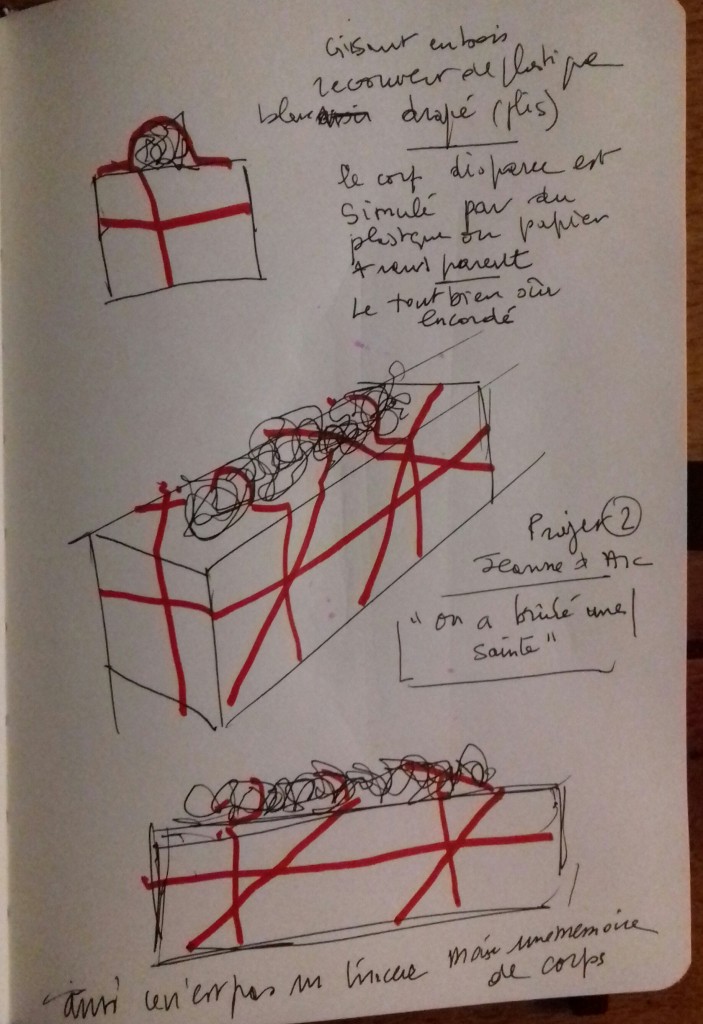 Gisant en bois
recouvert de plastique
bleu noir drapé (plis)
le corp disparu est
simulé par du
plastique ou papier
transparent
Le tout bien sûr
encordé
Projet 2
Jeanne d Arc
"on a brulé une
sainte"
ainsi ce n'est pas un linceul mais une memoire
de corps